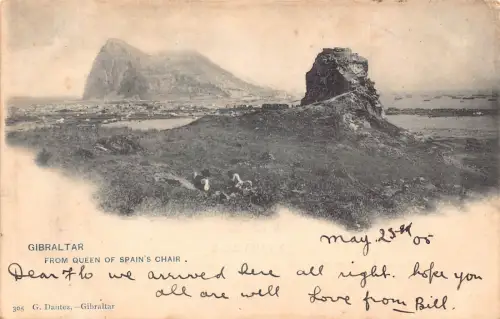 GIBRALTAR
FROM QUEEN OF SPAIN'S CHAIR.
May 23rd 05
Dear Flo we arrived here all right. hope you
all are well Love from Bill.
305 G. Dautez, - Gibraltar